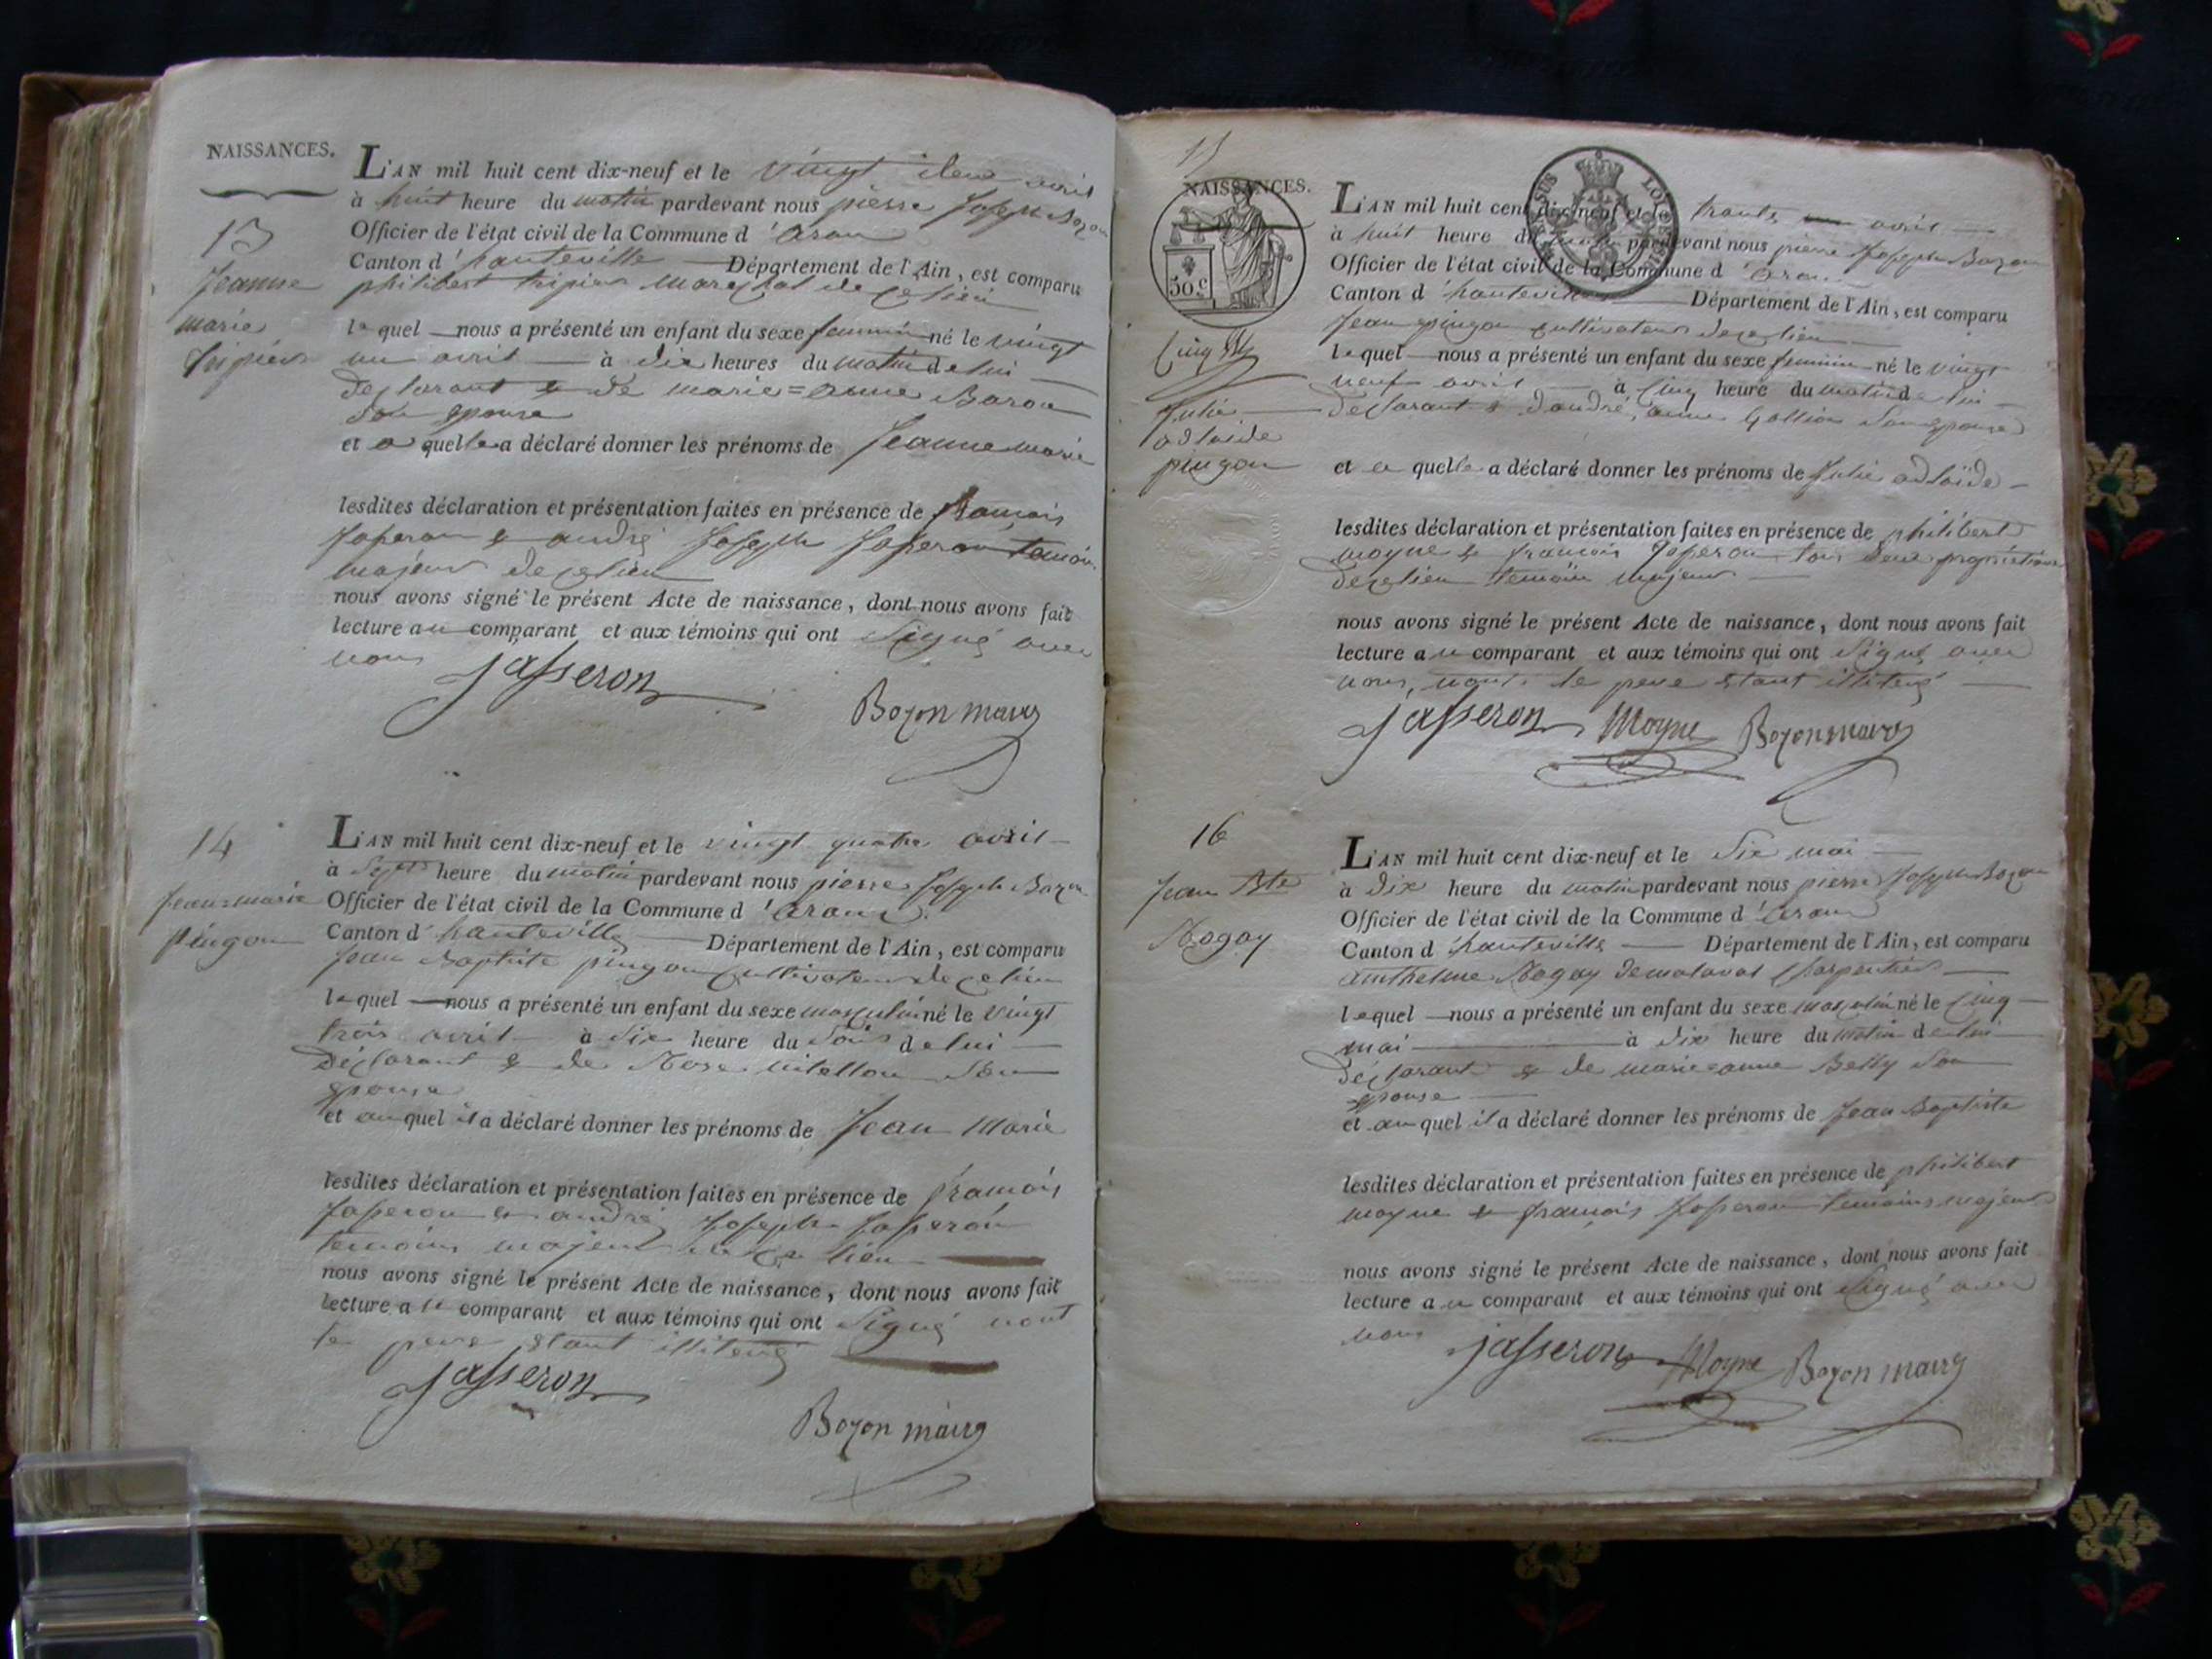 NAISSANCES.
L'AN mil huit cent dix-neuf et le vingt deux avril
à huit heure du matin pardevant nous pierre Joseph Bozon
Officier de l'état civil de la Commune d'aran
Canton d'hauteville Département de l'Ain, est comparu
philibert tripier marechal de ce lieu
lequel nous a présenté un enfant du sexe feminin né le vingt
un avril à dix heures du matin de lui
declarant & de marie=anne Baron
son epouse
et a quelle a déclaré donner les prénoms de Jeanne marie
lesdites déclaration et présentation faites en présence de francois
Jasseron & andré Joseph Jasseron temoin
majeurs de ce lieu
nous avons signé le présent Acte de naissance, dont nous avons fait
lecture au comparant et aux témoins qui ont Signé avec
nous
Jasseron
Bozon maire
13
Jeanne
marie
tripier
14
Jean=marie
pingon
L'AN mil huit cent dix-neuf et le vingt quatre avril
à Sept heure du matin pardevant nous pierre Joseph Bozon
Officier de l'état civil de la Commune d'aran
Canton d'hauteville Département de l'Ain, est comparu
Jean Baptiste pingon cultivateur de ce lieu
lequel nous a présenté un enfant du sexe masculin né le vingt
trois avril à Six heure du Soir de lui
declarant & de Rose vitellon Son
epouse
et auquel il a déclaré donner les prénoms de Jean Marie
lesdites déclaration et présentation faites en présence de francois
Jasseron & andré Joseph Jasseron
temoins majeurs de ce lieu
nous avons signé le présent Acte de naissance, dont nous avons fait
lecture au comparant et aux témoins qui ont Signé nont
le pere etant illiteré
Jasseron
Bozon maire
15
NAISSANCES.
50 c
Cinq
Julie
adlaide
pingon
L'AN mil huit cent dix-neuf et le trante avril
à huit heure du matin pardevant nous pierre Joseph Bozon
Officier de l'état civil de la Commune d'aran
Canton d'hauteville Département de l'Ain, est comparu
Jean pingon cultivateur de ce lieu
lequel nous a présenté un enfant du sexe feminin né le vingt
neuf avril à Cinq heure du matin de lui
declarant & dandré, anne Gollion Son epouse
et a quelle a déclaré donner les prénoms de Julie adlaïde
lesdites déclaration et présentation faites en présence de philibert
moyne & francois Jasseron tous deux proprietaires
de ce lieu temoin majeurs
nous avons signé le présent Acte de naissance, dont nous avons fait
lecture au comparant et aux témoins qui ont Signé avec
nous, nont le pere etant illiteré
Jasseron Moyne Bozon maire
16
Jean Bte
Rogay
L'AN mil huit cent dix-neuf et le Six mai
à dix heure du matin pardevant nous pierre Joseph Bozon
Officier de l'état civil de la Commune d'aran
Canton d'hauteville Département de l'Ain, est comparu
anthelme Rogay de malaval Charpentier
lequel nous a présenté un enfant du sexe masculin né le Cinq
mai à dix heure du matin de lui
declarant & de marie=anne Belly Son
epouse
et auquel il a déclaré donner les prénoms de Jean Baptiste
lesdites déclaration et présentation faites en présence de philibert
moyne & francois Jasseron temoins majeurs
nous avons signé le présent Acte de naissance, dont nous avons fait
lecture au comparant et aux témoins qui ont Signé avec
nous
Jasseron Moyne Bozon maire